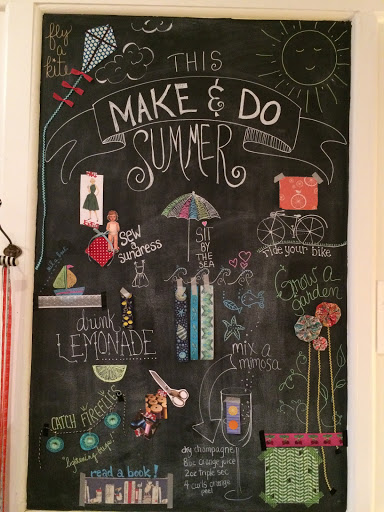 fly
a
kite
THIS
MAKE & DO
SUMMER
sew
a
sundress
SIT
BY
THE
SEA
ride your bike
Grow a
Garden
drink
LEMONADE
mix a
mimosa
CATCH FIREFLIES
"lightening bugs"
dry champagne
8oz orange juice
2oz triple sec
4 curls orange
peel
read a book!